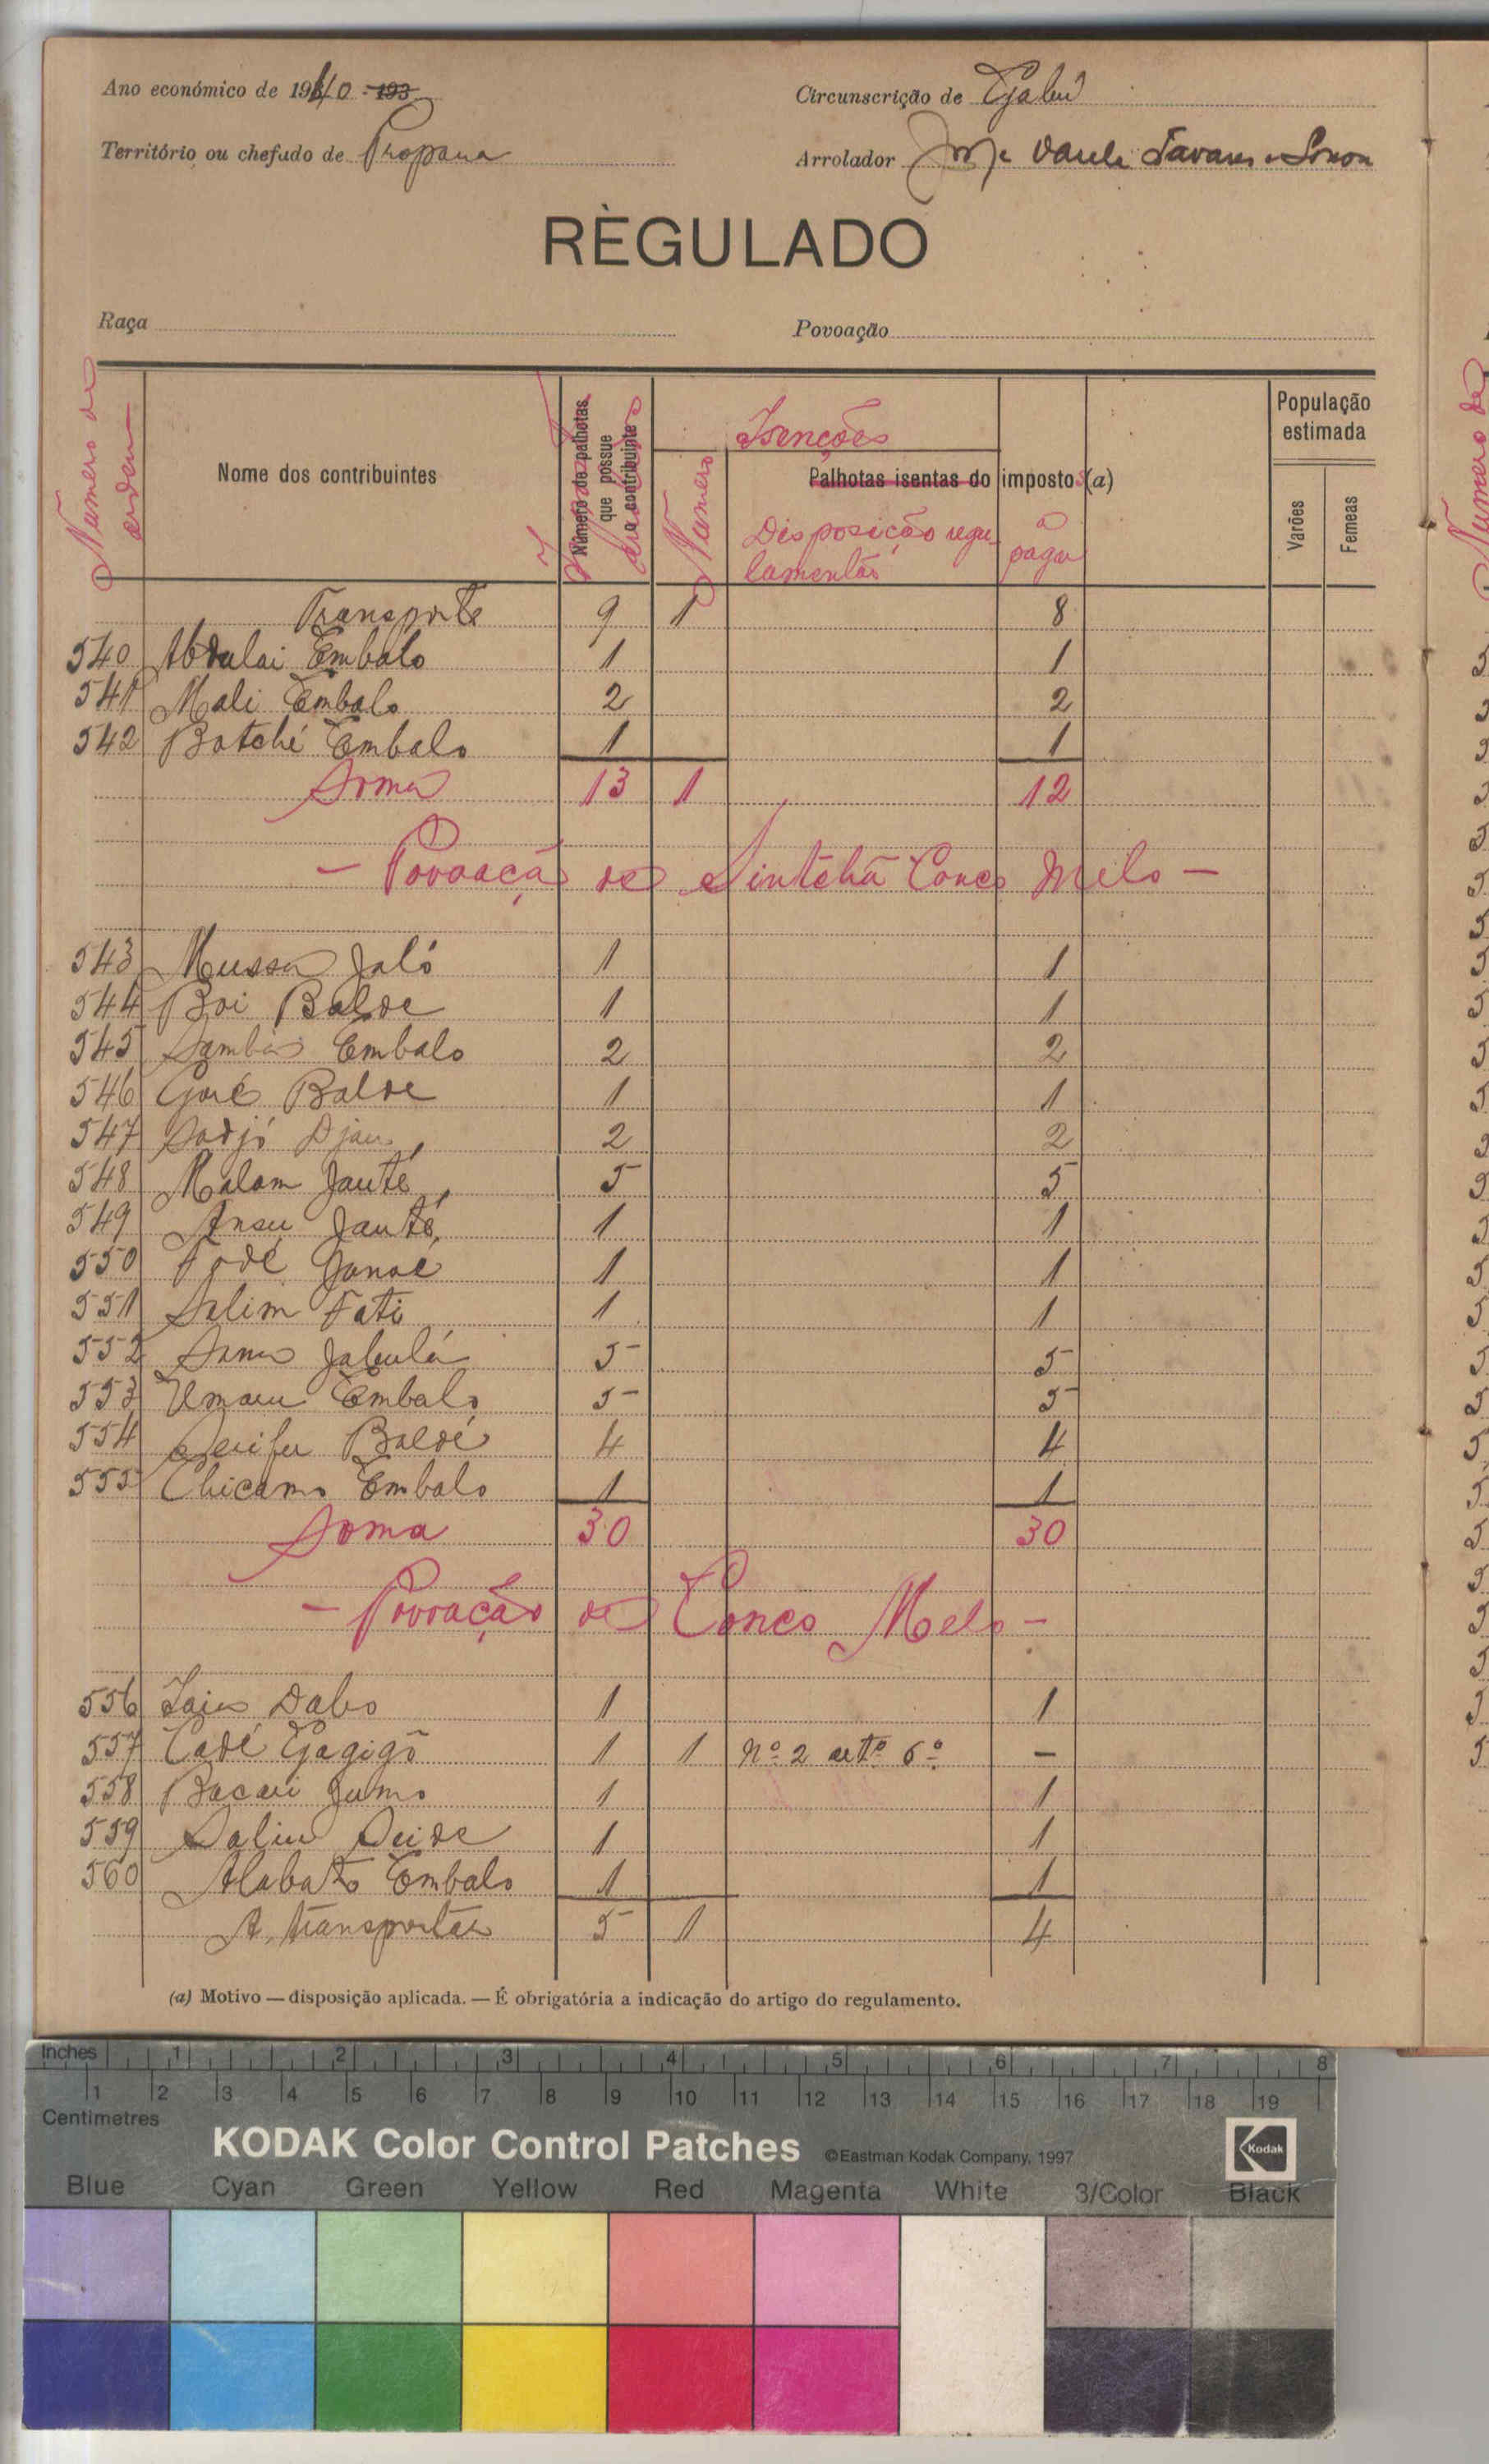 Ano económico de 1940 - 193
Circunscrição de Gabú
Território ou chefado de Propana
Arrolador Tavares
RÈGULADO
Raça
Povoação
Numero de ordem
Nome dos contribuintes
Número de palhotas que possue o contribuinte
Isenções
Numero
Palhotas isentas do imposto (a)
Disposição regulamentar
a pagar
População estimada
Varões
Femeas
Transporte 9 1 8
540 Abdulai Embalo 1 1
541 Mali Embalo 2 2
542 Batché Embalo 1 1
Soma 13 1 12
- Povoação de Sintchã Conco Melo -
543 Mussa Jaló 1 1
544 Boi Balde 1 1
545 Samba Embalo 2 2
546 Balde 1 1
547 Sadjó Djau 2 2
548 Malam Janté 5 5
549 Ansu Janté 1 1
550 Fodé 1 1
551 Salim Fati 1 1
552 Jabulá 5 5
553 Umaru Embalo 5 5
554 Baldé 4 4
555 Chicamo Embalo 1 1
Soma 30 30
- Povoação de Conco Melo -
556 Dabo 1 1
557 Cadé Gagigo 1 1 nº 2 artº 6º -
558 Bacari 1 1
559 Saliu Seide 1 1
560 Alabato Embalo 1 1
A transportar 5 1 4
(a) Motivo — disposição aplicada. — É obrigatória a indicação do artigo do regulamento.
Inches 1 2 3 4 5 6 7 8
1 2 3 4 5 6 7 8 9 10 11 12 13 14 15 16 17 18 19
Centimetres
KODAK Color Control Patches ©Eastman Kodak Company, 1997 Kodak
Blue Cyan Green Yellow Red Magenta White 3/Color Black